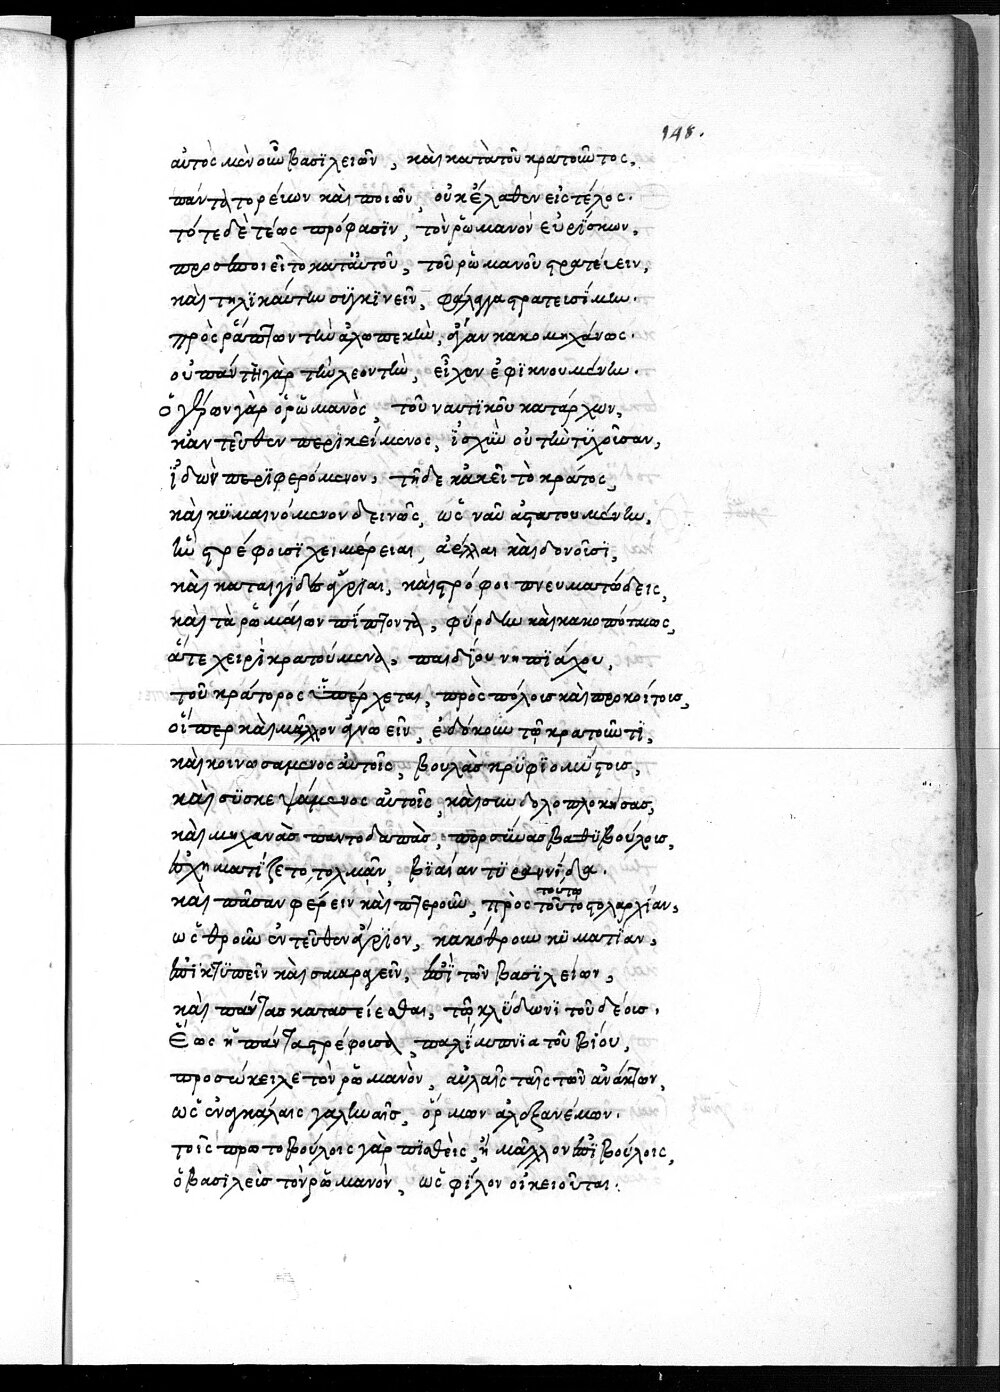 148.
αὐτὸς μὲν οὖν βασιλειῶν, καὶ κατὰ τοῦ κρατοῦντος,
πάντα τορεύων καὶ ποιῶν, οὐκ ἔλαθεν εἰς τέλος.
τότε δὲ τέως πρόφασιν, τὸν ῥωμανὸν εὑρίσκων,
προσποιεῖτο κατ' αὐτοῦ, τοῦ ῥωμανοῦ στρατεύειν,
καὶ τηλικαύτην συγκινεῖν, φάλαγγα στρατευσίμην.
πρὸς ῥάπτων τὴν ἀλωπεκῆν, οἷαν κακομηχάνως.
οὐ πάντη γὰρ τὴν λεοντῆν, εἶχεν ἐφικνουμένην.
ὁ γοῦν γὰρ ὁ ῥωμανὸς, τοῦ ναυτικοῦ κατάρχων,
κἀντεῦθεν περικείμενος, ἰσχὺν οὐ τὴν τυχοῦσαν,
ἰδὼν περιφερόμενον, τῇδε κἀκεῖ τὸ κράτος,
καὶ κυμαινόμενον δεινῶς, ὡς ναῦν ἀπατουμένην,
ἣν στρέφουσι χειμέρειαι, ἀέλλαι καὶ δονοῦσι,
καὶ καταιγίδες ἄγριαι, καὶ στρόφοι πνευματώδεις,
καὶ τὰ ῥωμαίων πίπτοντα, φύρδην καὶ κακοπότμως,
ἅτε χειρὶ κρατούμενα, παιδίου νηπιάχου,
τοῦ κράτορος ὑπέρχεται, πρὸς πόλοις καὶ προκοίτοις,
οἵπερ καὶ μᾶλλον εὐνοεῖν, ἐδόκουν τῷ κρατοῦντι,
καὶ κοινωσάμενος αὐτοῖς, βουλὰς κρυφιομύστοις,
καὶ συσκεψάμενος αὐτοῖς, καὶ συνδολοπλοκήσας,
καὶ μηχανὰς παντοδαπὰς, πορσύνας βαθυβούλοις,
ἐσχηματίζετο τολμᾶν, βιαίαν τυραννίδα.
καὶ πᾶσαν φέρειν καὶ πτεροῦν, πρὸς τοῦτο στολαρχίαν,
τούτω
ὡς θροῦν ἐντεῦθεν ἄγριον, κακόθρουν κυματίαν,
ἐπικτυπεῖν καὶ σμαραγεῖν, ἐπὶ τῶν βασιλείων,
καὶ πάντας κατασείεσθαι, τῷ κλύδωνι τοῦ δέους.
ἕως ἡ πάντα στρέφουσα, παλίμπνοια τοῦ βίου,
προσώκειλε τὸν ῥωμανὸν, αὐλαῖς ταῖς τῶν ἀνάκτων,
ὡς ἐν ἀγκάλαις γαληναῖς, ὅρμων ἀλεξανέμων.
τοῖς πρωτοβούλοις γὰρ πεισθεὶς, ἢ μᾶλλον ἐπιβούλοις,
ὁ βασιλεὺς τὸν ῥωμανὸν, ὡς φίλον οἰκειοῦται.